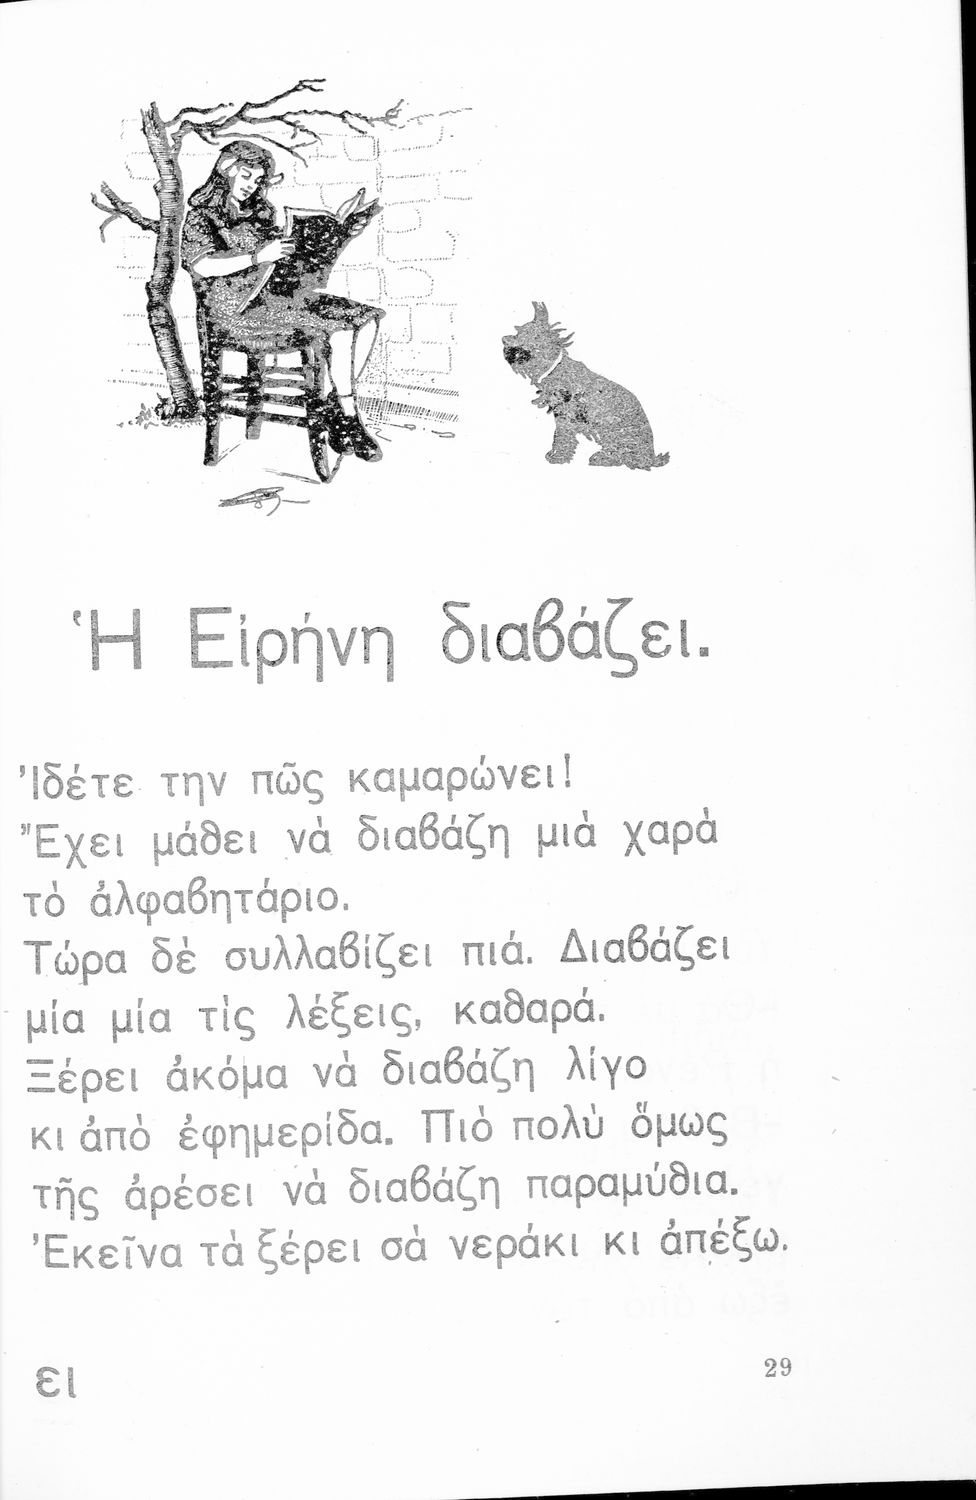 Ἡ Εἰρήνη διαβάζει.
Ἰδέτε την πῶς καμαρώνει!
Ἔχει μάθει νὰ διαβάζη μιὰ χαρὰ
τὸ ἀλφαβητάριο.
Τώρα δὲ συλλαβίζει πιά. Διαβάζει
μία μία τὶς λέξεις, καθαρά.
Ξέρει ἀκόμα νὰ διαβάζη λίγο
κι ἀπὸ ἐφημερίδα. Πιὸ πολὺ ὅμως
τῆς ἀρέσει νὰ διαβάζη παραμύθια.
Ἐκεῖνα τὰ ξέρει σὰ νεράκι κι ἀπέξω.
ει
29